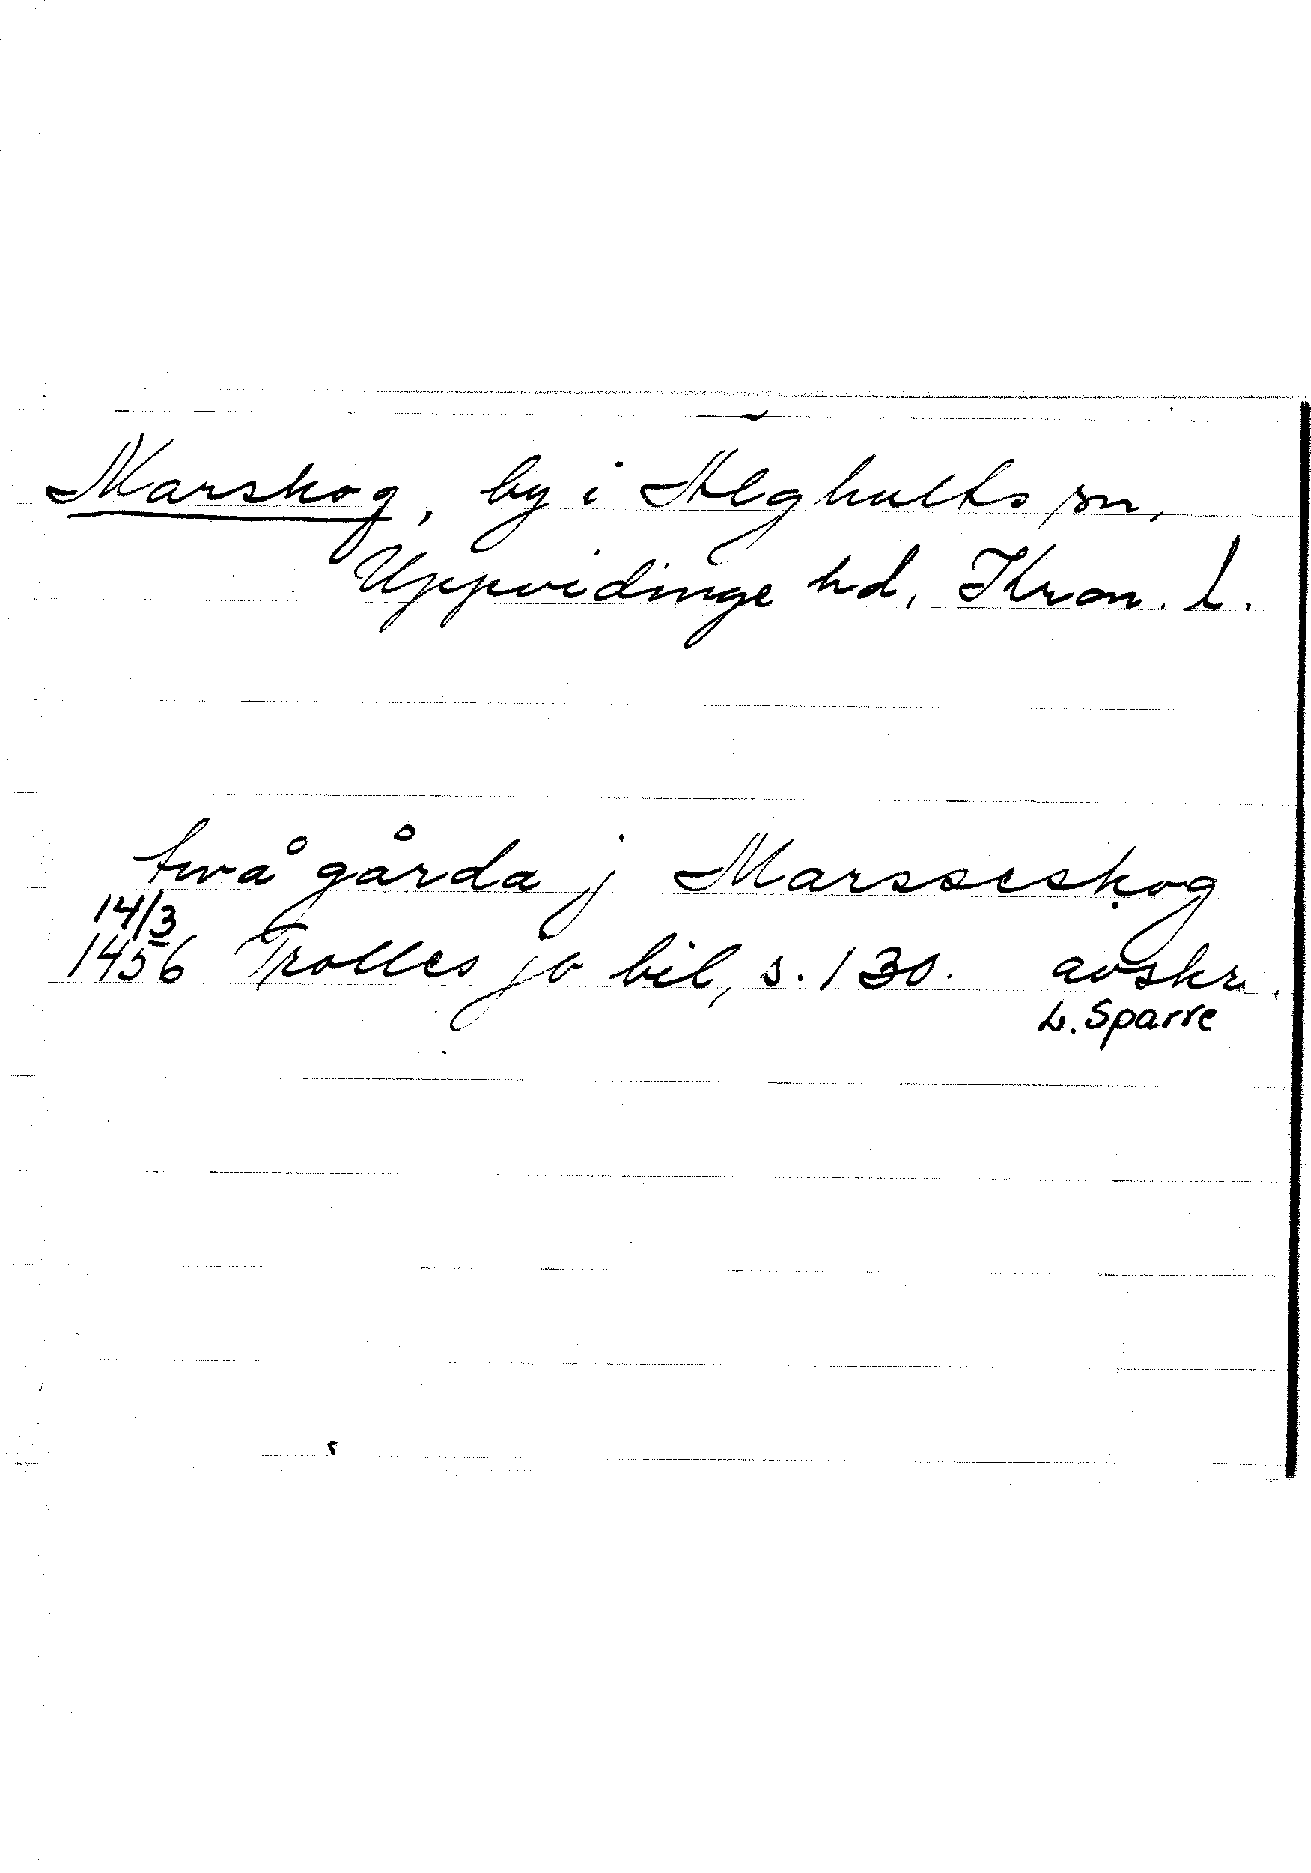 Marskog, by i Älghults sn,
Uppvidinge hd, Kron. L.
twå gårda j Marsseskog
14/3
1456 Trolles jb bil, s. 130. avskr.
L. Sparre